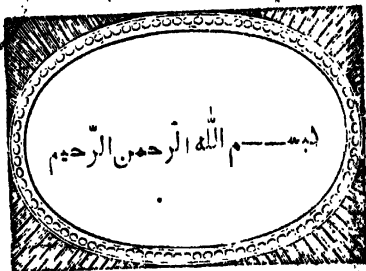 بســـم الله الرحمن الرّحيم